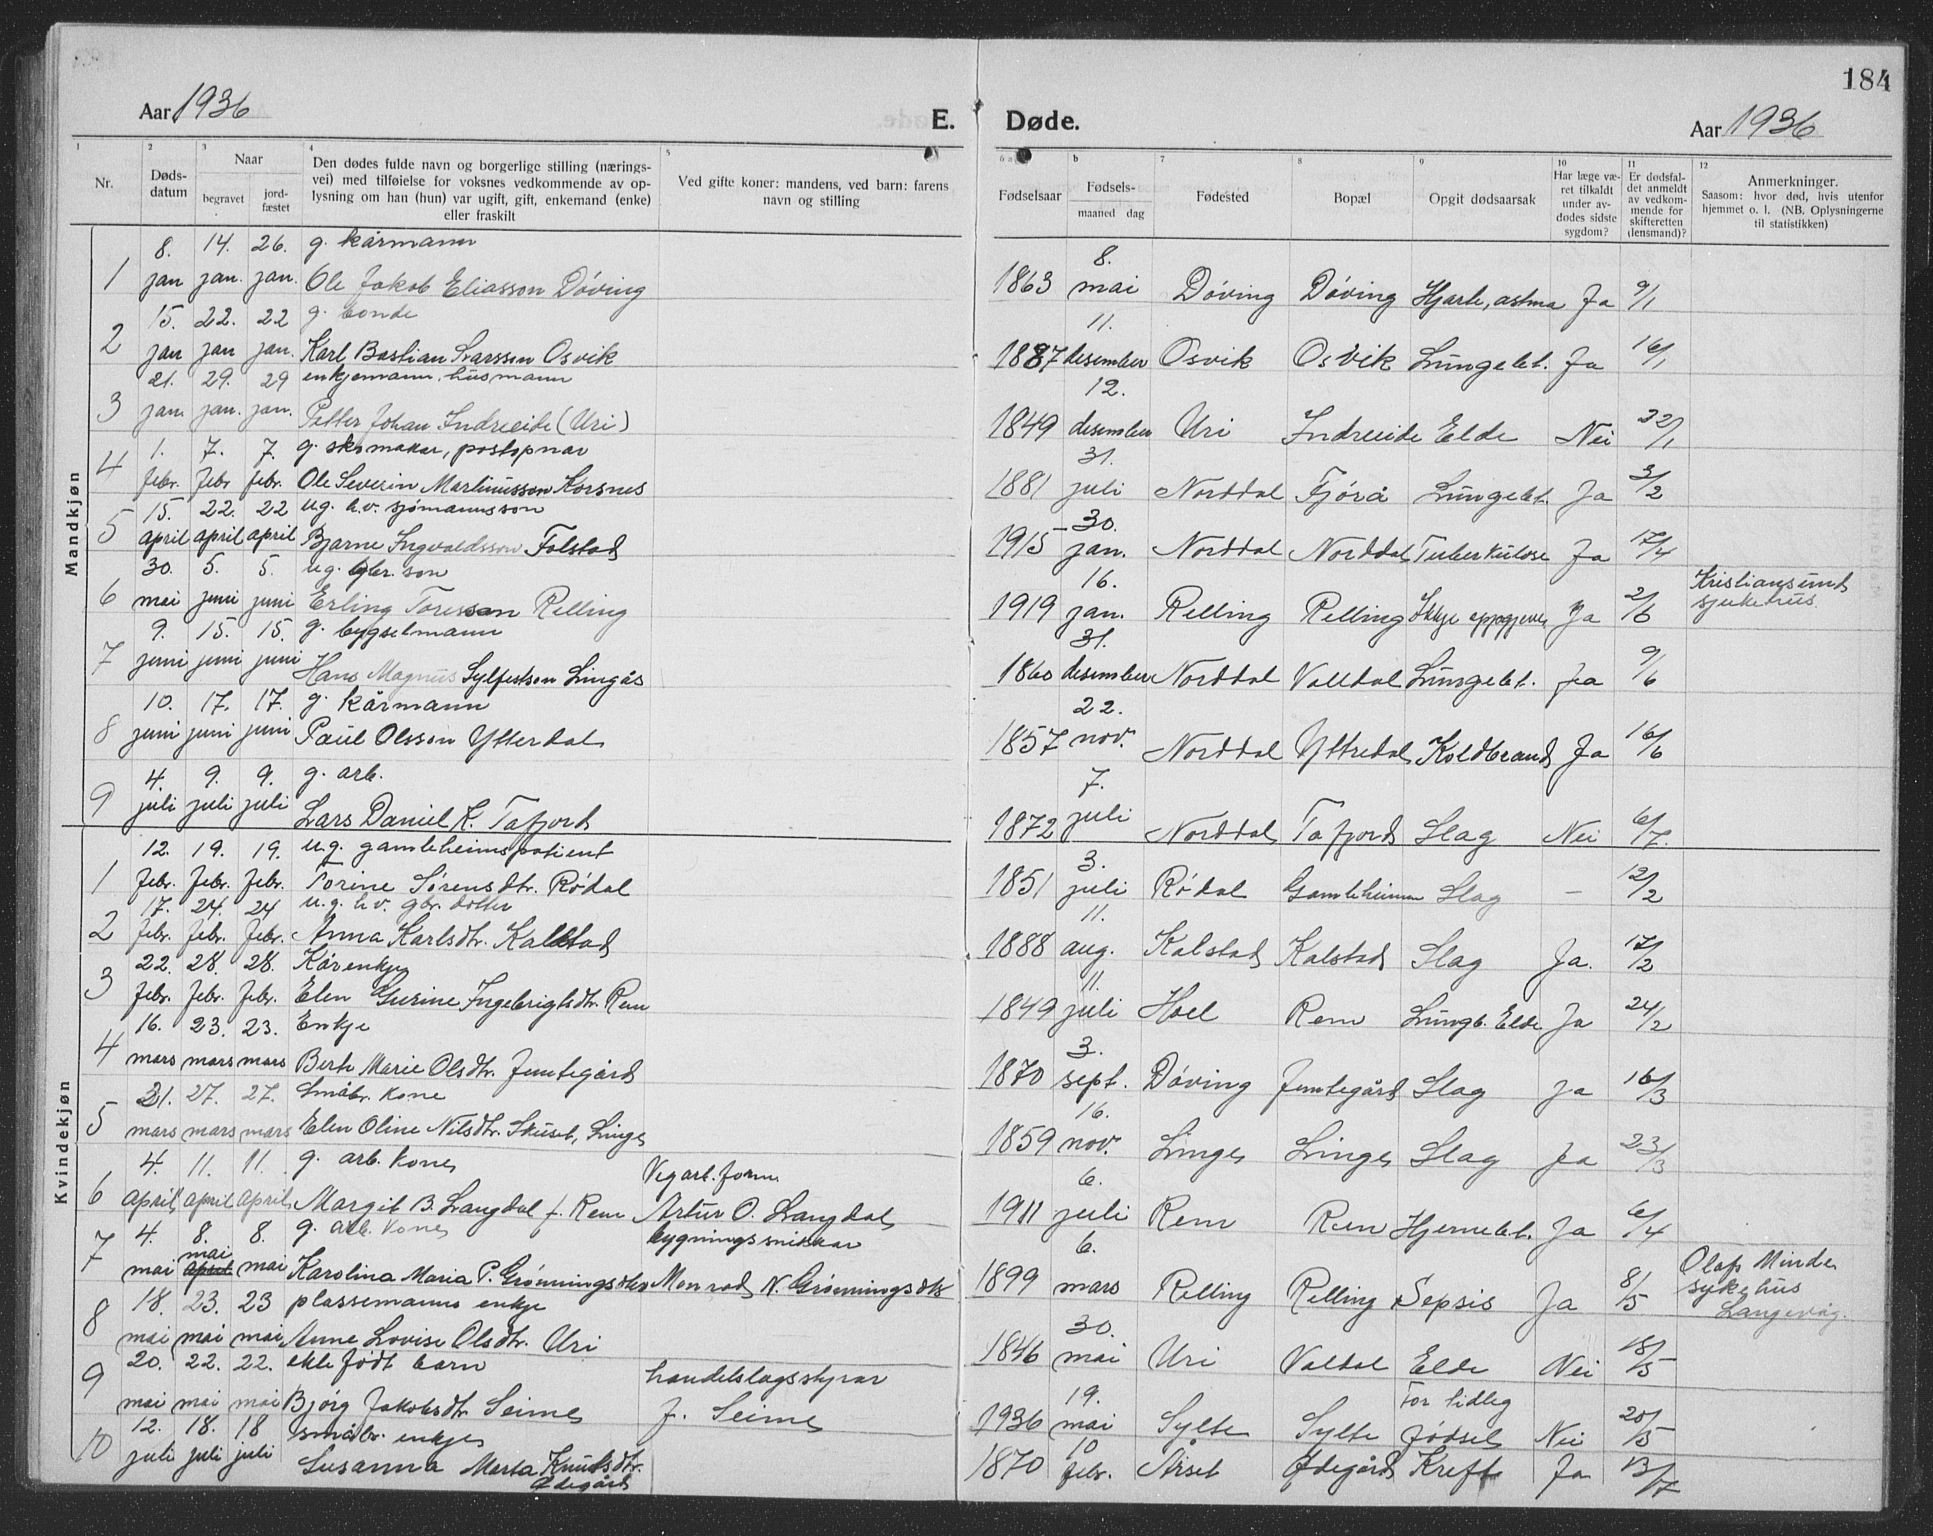 184
Aar 1936 E. Døde. Aar 1936
1 2 3 4 5 6 a b 7 8 9 10 11 12
Nr.
Døds-
datum
Naar
begravet
jord-
fæstet
Den dødes fulde navn og borgerlige stilling (nærings-
vei) med tilføielse for voksnes vedkommende av op-
lysning om han (hun) var ugift, gift, enkemand (enke)
eller fraskilt
Ved gifte koner: mandens, ved barn: farens
navn og stilling
Fødselsaar
Fødsels-
maaned dag
Fødested
Bopæl
Opgit dødsaarsak
Har læge væ-
ret tilkaldt
under av-
dødes sidste
sygdom?
Er dødsfal-
det anmeldt
av vedkom-
mende for
skifteretten
(lensmand)?
Anmerkninger.
Saasom: hvor død, hvis utenfor
hjemmet o. l. (NB. Oplysningerne
til statistikken)
Mandkjøn
8. 14. 26. g. kårmann 8.
1 jan jan. jan. Ole Jakob Eliasson Døving 1863 mai Døving Døving Hjarte, astma Ja 9/1
15. 22. 22 g. bonde 11.
2 jan jan jan. Karl Bastian Ivarsson Osvik 1887 desember Osvik Osvik Lungebet. Ja 16/1
21. 29. 29 enkjemann, husmann 12.
3 jan. jan. jan. Petter Johan Indreeide (Uri) 1849 desember Uri Indreeide Elde Nei 22/1
1. 7. 7. g. skomakar, postopnar 31.
4 febr. febr febr. Ole Severin Martinusson Korsnes 1881 juli Norddal Fjørå Lungebet. Ja 3/2
15. 22. 22 ug. h.v. sjømannsson 30.
5 april april april Bjarne Ingvaldsson Folstad 1915 jan. Norddal Norddal Tuberkulose Ja 17/4
30. 5. 5. ug. gbr. son 16. Kristiansund
6 mai juni juni Erling Toresson Relling 1919 jan. Relling Relling Ikkje oppgjeve Ja 2/6 sjukehus
9. 15. 15. g. bygselmann 31.
7 juni juni juni Hans Magnus Sylfestson Lingås 1860 desember Norddal Valldal Lungebet. Ja 9/6
10. 17. 17. g. kårmann 22.
8 juni juni juni Paul Olsson Ytterdal 1857 nov. Norddal Yttredal Koldbrand Ja 16/6
4. 9. 9. g. arb. 7.
9 juli juli juli Lars Daniel K. Tafjord 1872 juli Norddal Tafjord Slag Nei 6/7.
Kvindekjøn
12. 19. 19. ug. gamleheimspatient 3.
1 febr. febr. febr. Torine Sørensdtr. Rødal 1851 juli Rødal Gamleheimen Slag – 12/2
17. 24. 24 u.g. h.v. gbr. dotter 11.
2 febr. febr. febr. Anna Karlsdtr. Kalstad 1888 aug. Kalstad Kalstad Slag Ja. 17/2
22. 28. 28. Kårenkje 11.
3 febr. febr. febr. Elen Gurine Ingebrigtsdtr. Rem 1849 juli Hoel Rem Lungb. Elde Ja 24/2
16. 23. 23. Enkje 3.
4 mars mars mars Berte Marie Olsdtr. Jemtegård 1870 sept. Døving Jemtegård Slag Ja 16/3
21. 27. 27. Småbr. kone 16.
5 mars mars mars Elen Oline Nilsdtr. Skuset, Linge 1859 nov. Linge Linge Slag Ja 23/3
4. 11. 11. g. arb. kone Vegarb. form. 6.
6 april april april Margit B. Langdal f. Rem Artur O. Langdal 1911 juli Rem Rem Hjernebet. Ja 6/4
4. 8. 8. g. arb. kone bygningssnikkar 6. Olaf Minde
7 mai mai april mai Karolina Maria P. Grønningsdter Monrad N. Grønningsdts 1899 mars Relling Relling Sepsis Ja 8/5 sykehus
Langevåg.
18. 23. 23 plassemanns enkje 30.
8 mai mai mai Anne Lovise Olsdtr. Uri 1846 mai Uri Valdal Elde Nei 18/5
20. 22. 22. ekte født barn handelslagsstyrar 19. For tidleg
9 mai mai mai Bjørg Jakobsdtr Seime J. Seime 1936 mai Sylte Sylte fødsel Nei 20/5
12. 18. 18 småbr. enkje 10
10 juli juli juli Susanna Marta Knutsdtr. 1870 febr. Årset Ødegård Kreft Ja 13/7
Ødegård